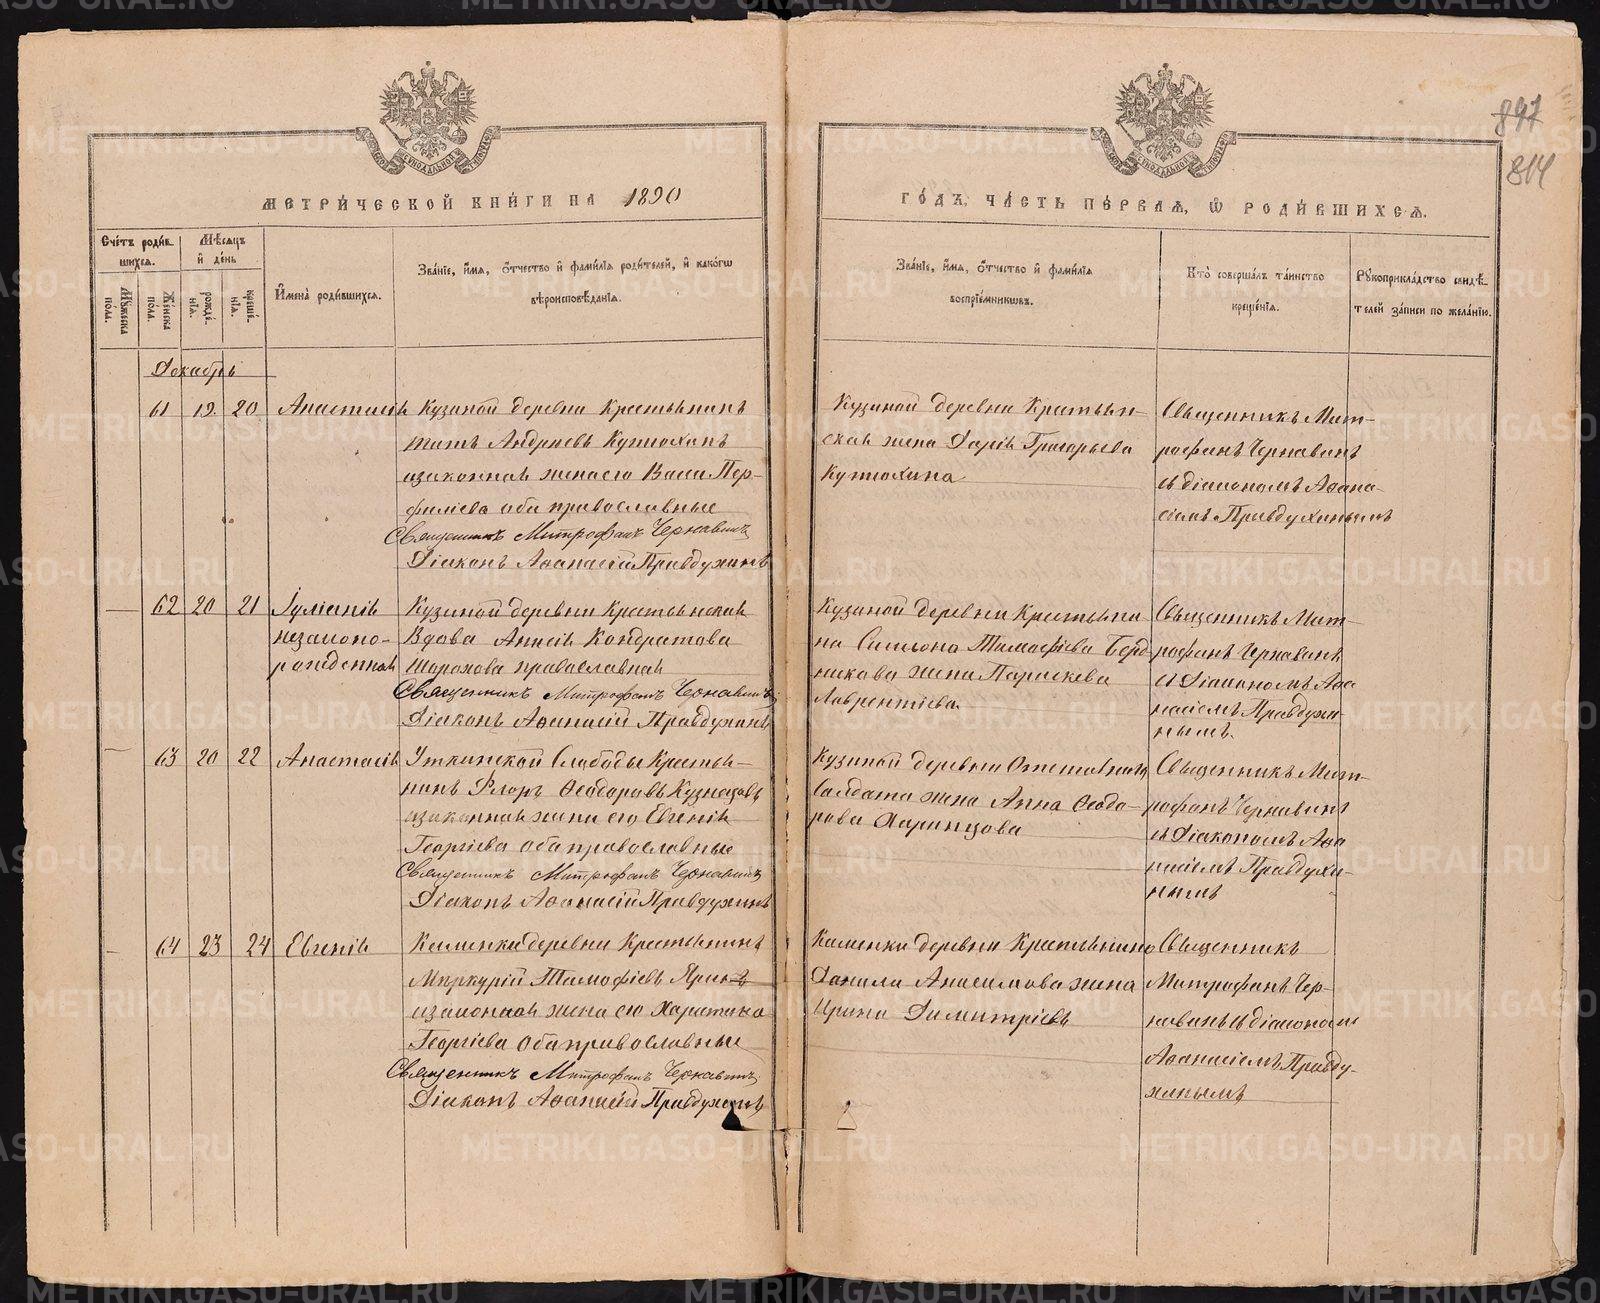 897
814
МЕТРИ́ЧЕСКОЙ КНИ́ГИ НА 1890
ГО́ДЪ, ЧА́СТЬ ПЕ́РВАЯ, Ѡ РОДИ́ВШИХСЯ.
Сче́тъ роди́в-
шихся.
Мѣ́сяцъ
и де́нь
Му́жеска
по́ла.
Же́нска
по́ла.
рожде́-
нія.
креще́-
нія.
Имена̀ роди́вшихся.
Зва́ніе, и́мя, о́тчество и фами́лія роди́телей, и како́гѡ
вѣроисповѣ́данія.
Зва́ніе, и́мя, о́тчество и фами́лія
воспріе́мниковъ.
Кто̀ соверша́лъ та́инство
креще́нія.
Рукоприкла́дство свидѣ́-
телей за́писи по жела́нію.
Декабрь
61 19. 20 Анастасія
Кузиной деревни Крестьянинъ
Андреевъ Кутюхинъ
изаконная жена его Васса Пер-
филіева оба православные
Священникъ Митрофанъ Чернавинъ
Діаконъ Аѳанасій Правдухинъ
Кузиной деревни Крестьян-
ская жена Дарія Григорьева
Кутюхина
Священникъ Мит-
рофанъ Чернавинъ
съ діакономъ Аѳана-
сіемъ Правдухинымъ
62 20 21 Іуліанія
незаконо-
рожденная
Кузиной деревни Крестьянская
Вдова Анисія Кондратова
Шорохова православная
Священникъ Митрофанъ Чернавинъ
Діаконъ Аѳанасій Правдухинъ
Кузиной деревни Крестьяни-
на Симеона Тимофѣева Берд-
никова жена Параскева
Лаврентіева
Священникъ Мит-
рофанъ Чернавинъ
съ Діакономъ Аѳа-
насіемъ Правдухи-
нымъ.
63 20 22 Анастасія
Уткинской Слободы Крестья-
нинъ Флоръ Ѳеодоровъ Кузнецовъ
изаконная жена его Евгенія
Георгіева оба православные
Священникъ Митрофанъ Чернавинъ
Діаконъ Аѳанасій Правдухинъ
Кузиной деревни Отставнаго
Солдата жена Анна Ѳеодо-
рова Харинцова
Священникъ Мит-
рофанъ Чернавинъ
съ Діакономъ Аѳа
насіемъ Правдухи-
нымъ
64 23 24 Евгенія
Каменки деревни Крестьянинъ
Меркурій Тимофѣевъ Яринъ
изаконная жена его Харитина
Георгіева оба православные
Священникъ Митрофанъ Чернавинъ
Діаконъ Аѳанасій Правдухинъ
Каменки деревни Крестьянина
Данила Анисимова жена
Ирина Димитріева
Священникъ
Митрофанъ Чер-
навинъ съ діакономъ
Аѳанасіемъ Правду-
хинымъ